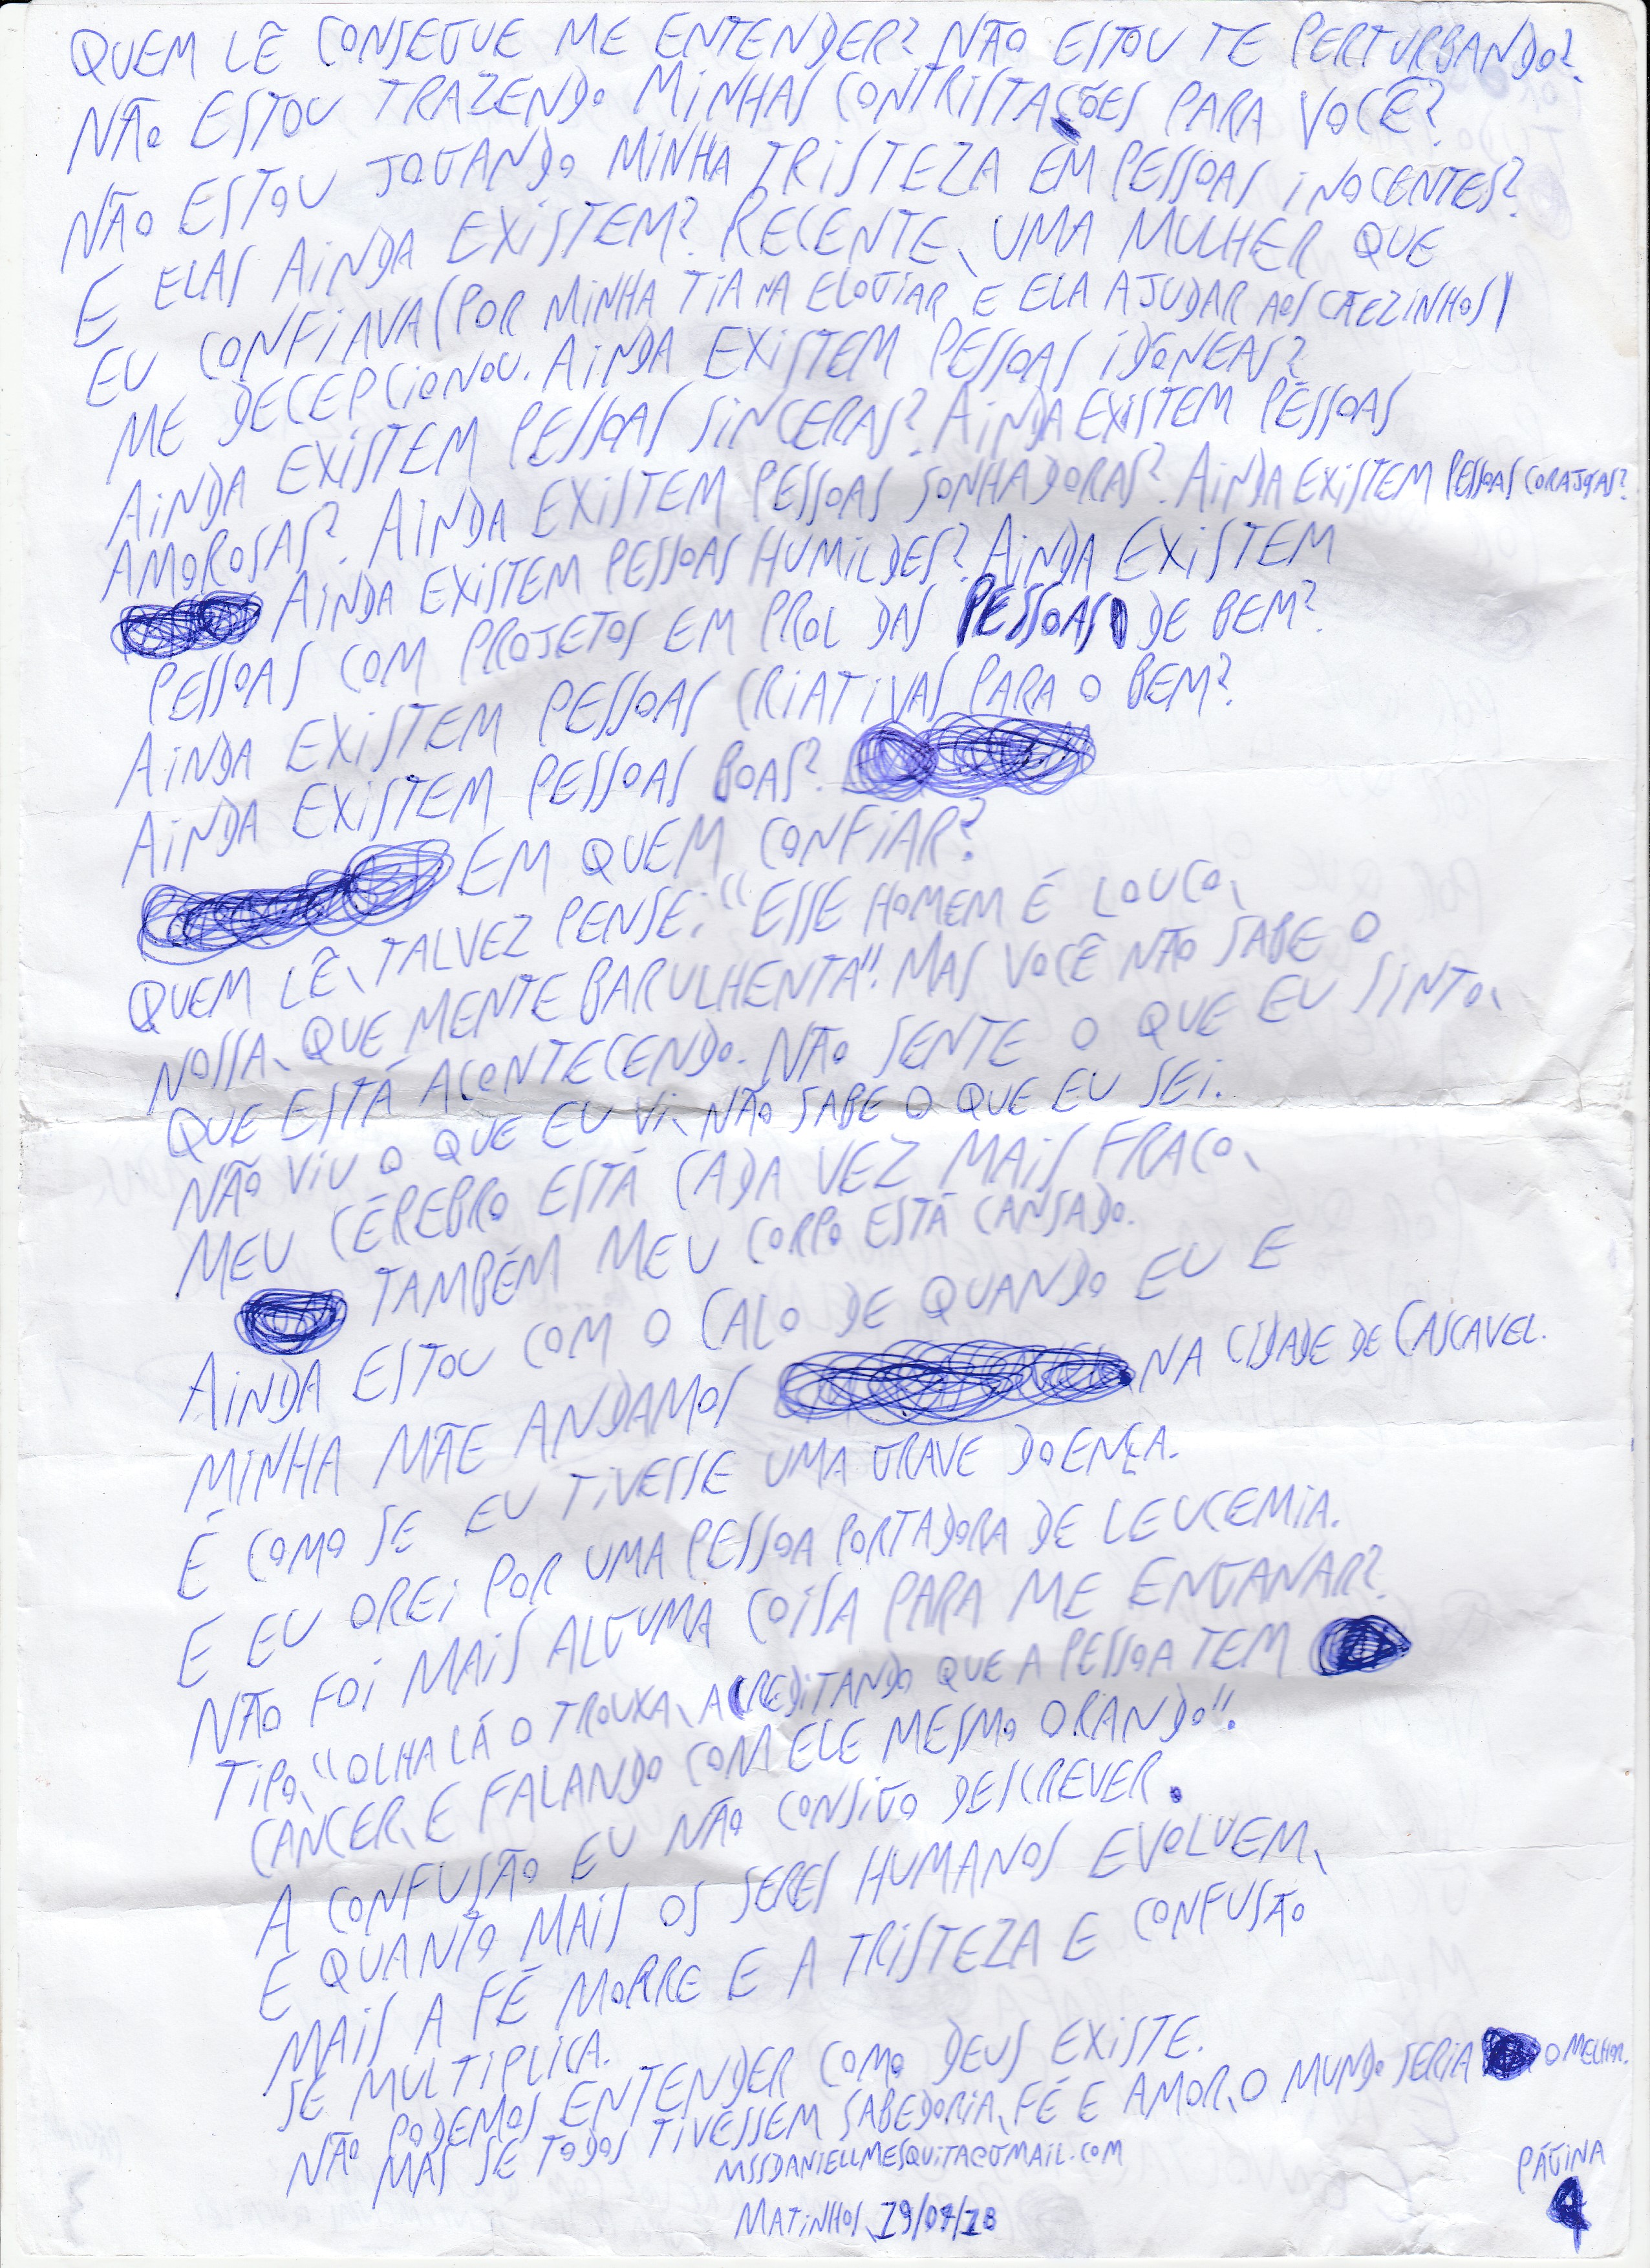 QUEM LÊ CONSEGUE ME ENTENDER? NÃO ESTOU TE PERTURBANDO?
NÃO ESTOU TRAZENDO MINHAS CONTRISTAÇÕES PARA VOCÊ?
NÃO ESTOU JOGANDO MINHA TRISTEZA EM PESSOAS INOCENTES?
E ELAS AINDA EXISTEM? RECENTE, UMA MULHER QUE
EU CONFIAVA (POR MINHA TIA NA ELOGIAR E ELA AJUDAR AOS CÃEZINHOS)
ME DECEPCIONOU. AINDA EXISTEM PESSOAS IDÔNEAS?
AINDA EXISTEM PESSOAS SINCERAS? AINDA EXISTEM PESSOAS
AMOROSAS? AINDA EXISTEM PESSOAS SONHADORAS? AINDA EXISTEM PESSOAS CORAJOSAS?
AINDA EXISTEM PESSOAS HUMILDES? AINDA EXISTEM
PESSOAS COM PROJETOS EM PROL DAS PESSOAS DE BEM?
AINDA EXISTEM PESSOAS CRIATIVAS PARA O BEM?
AINDA EXISTEM PESSOAS BOAS?
EM QUEM CONFIAR?
QUEM LÊ, TALVEZ PENSE: "ESSE HOMEM É LOUCO,
NOSSA, QUE MENTE BARULHENTA". MAS VOCÊ NÃO SABE O
QUE ESTÁ ACONTECENDO. NÃO SENTE O QUE EU SINTO,
NÃO VIU O QUE EU VI, NÃO SABE O QUE EU SEI.
MEU CÉREBRO ESTÁ CADA VEZ MAIS FRACO,
TAMBÉM MEU CORPO ESTÁ CANSADO.
AINDA ESTOU COM O CALO DE QUANDO EU E
MINHA MÃE ANDAMOS NA CIDADE DE CASCAVEL.
É COMO SE EU TIVESSE UMA GRAVE DOENÇA.
E EU OREI POR UMA PESSOA PORTADORA DE LEUCEMIA.
NÃO FOI MAIS ALGUMA COISA PARA ME ENGANAR?
TIPO, "OLHA LÁ O TROUXA, ACREDITANDO QUE A PESSOA TEM
CANCER, E FALANDO COM ELE MESMO ORANDO".
A CONFUSÃO EU NÃO CONSIGO DESCREVER.
E QUANTO MAIS OS SERES HUMANOS EVOLUEM,
MAIS A FÉ MORRE E A TRISTEZA E CONFUSÃO
SE MULTIPLICA.
NÃO PODEMOS ENTENDER COMO DEUS EXISTE.
MAS SE TODOS TIVESSEM SABEDORIA, FÉ E AMOR, O MUNDO SERIA O MELHOR.
MSSDANIELLMESQUITA@GMAIL.COM
PÁGINA
4
MATINHOS, 19/07/18